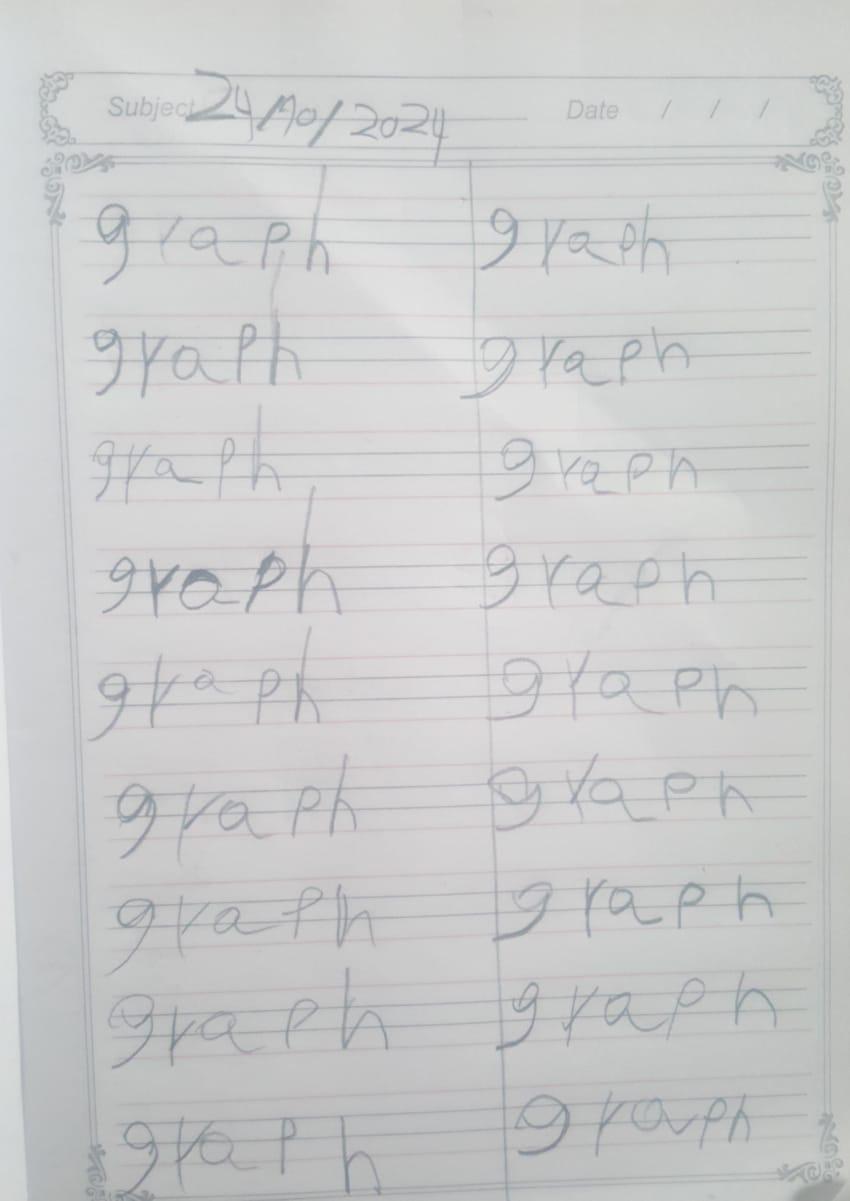 Subject 24/10/2024 Date / / /
graph graph
graph graph
graph graph
graph graph
graph graph
graph graph
graph graph
graph graph
graph graph